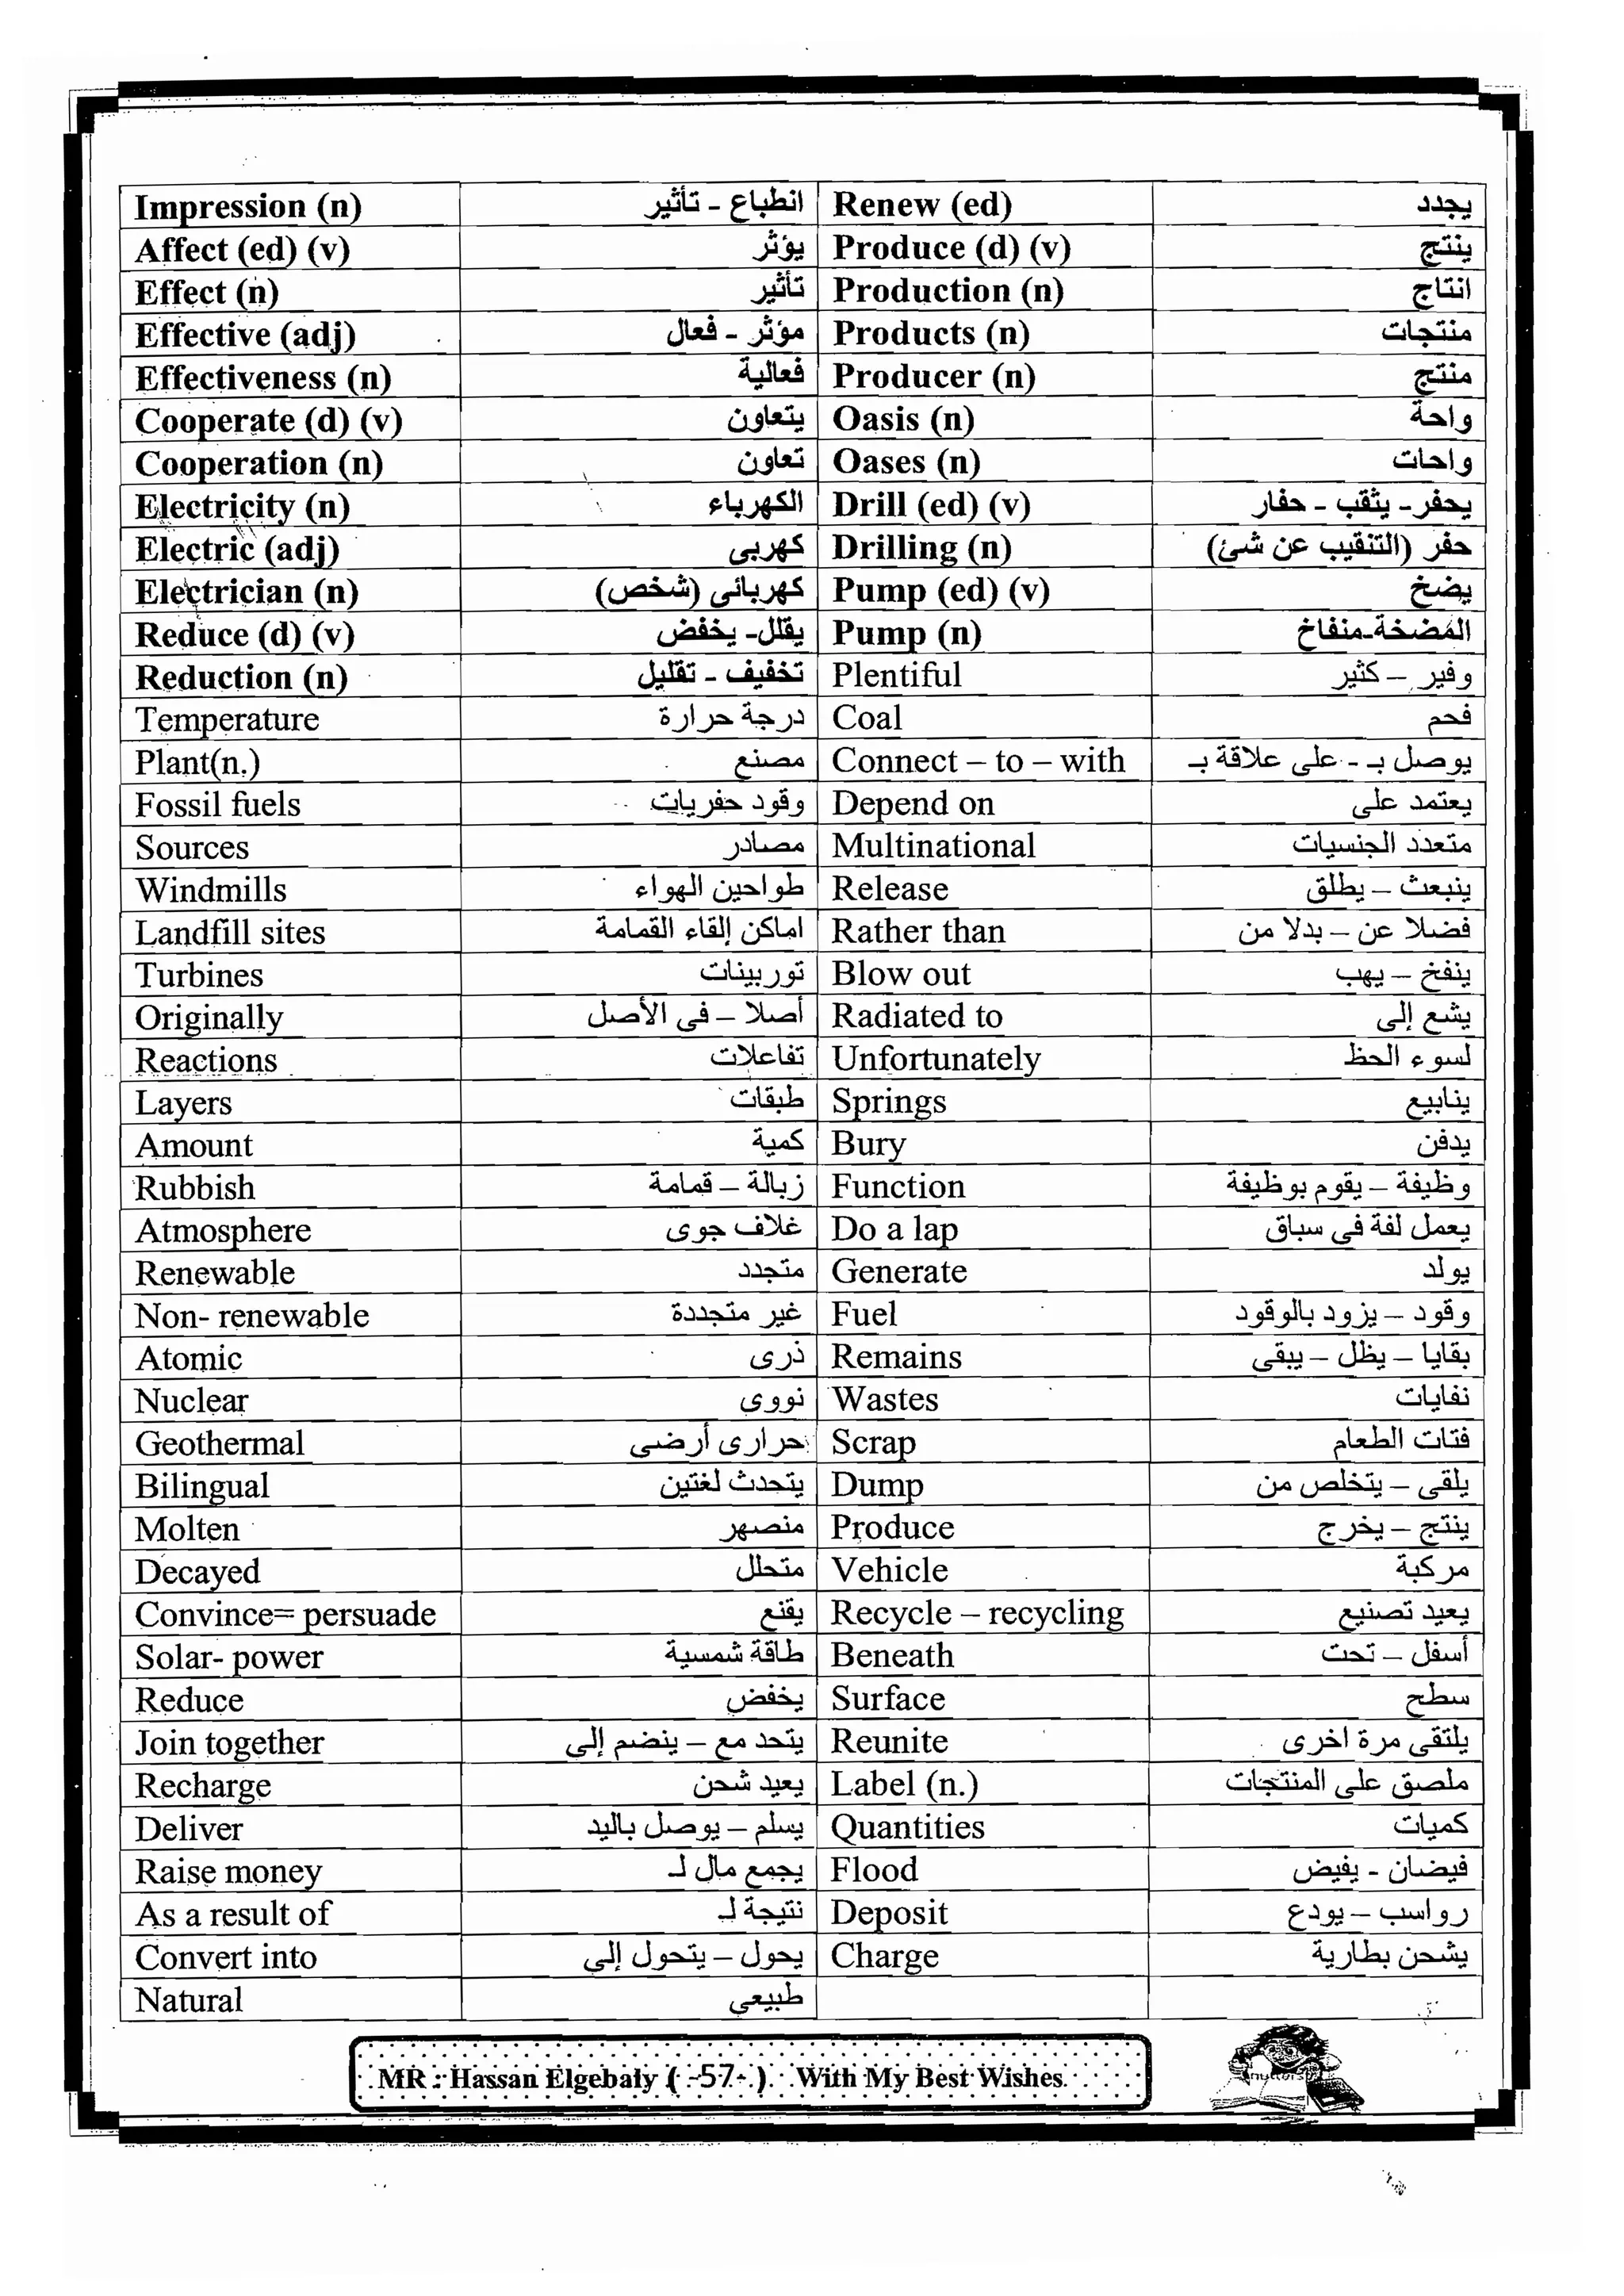 Impression (n) انطباع - تأثير Renew (ed) يجدد
Affect (ed) (v) يؤثر Produce (d) (v) ينتج
Effect (n) تأثير Production (n) انتاج
Effective (adj) مؤثر - فعال Products (n) منتجات
Effectiveness (n) فعالية Producer (n) منتج
Cooperate (d) (v) يتعاون Oasis (n) واحة
Cooperation (n) تعاون Oases (n) واحات
Electricity (n) الكهرباء Drill (ed) (v) يحفر- يثقب - حفار
Electric (adj) كهربى Drilling (n) حفر (التنقيب عن شئ)
Electrician (n) كهربائى (شخص) Pump (ed) (v) يضخ
Reduce (d) (v) يقلل- يخفض Pump (n) المُضخة-منفاخ
Reduction (n) تخفيف - تقليل Plentiful وفير – كثير
Temperature درجة حرارة Coal فحم
Plant(n.) مصنع Connect – to – with يوصل بـ - على علاقة بـ
Fossil fuels وقود حفريات Depend on يعتمد على
Sources مصادر Multinational متعدد الجنسيات
Windmills طواحين الهواء Release ينبعث – يطلق
Landfill sites اماكن إلقاء القمامة Rather than فضلا عن – بدلا من
Turbines توربينات Blow out ينفخ – يهب
Originally أصلا – فى الأصل Radiated to يشع إلى
Reactions تفاعلات Unfortunately لسوء الحظ
Layers طبقات Springs ينابيع
Amount كمية Bury يدفن
Rubbish زبالة – قمامة Function وظيفة – يقوم بوظيفة
Atmosphere غلاف جوى Do a lap يعمل لفة فى سباق
Renewable متجدد Generate يولد
Non- renewable غير متجددة Fuel وقود – يزود بالوقود
Atomic ذرى Remains بقايا – يظل – يبقى
Nuclear نووى Wastes نفايات
Geothermal حرارى أرضى Scrap فتات الطعام
Bilingual يتحدث لغتين Dump يلقى – يتخلص من
Molten منصهر Produce ينتج – يخرج
Decayed متحلل Vehicle مركبة
Convince= persuade يقنع Recycle – recycling يعيد تصنيع
Solar- power طاقة شمسية Beneath أسفل – تحت
Reduce يخفض Surface سطح
Join together يتحد مع – ينضم إلى Reunite يلتقى مرة اخرى
Recharge يعيد شحن Label (n.) ملصق على المنتجات
Deliver يسلم – يوصل باليد Quantities كميات
Raise money يجمع مال لـ Flood فيضان - يفيض
As a result of نتيجة لـ Deposit رواسب – يودع
Convert into يحول – يتحول إلى Charge يشحن بطارية
Natural طبيعى
MR : Hassan Elgebaly ( -57- ) With My Best Wishes